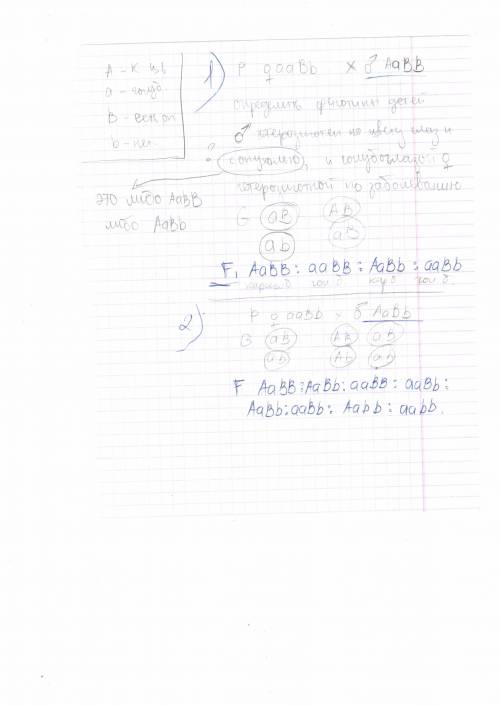 А - к цв
а - голуб
В - есть оп
b - нет
1) P ♀ aaBb × ♂ AaBB
определить фенотипы детей
♂ гетерозиготен по цвету глаз и
? с опухолью, и голубоглазой ♀
гетерозиготной по заболеванию
это либо AaBB
либо AaBb
G aB AB
ab aB
F₁ AaBB : aaBB : AaBb : aaBb
2) P ♀ aaBb × ♂ AaBb
aB AB aB
ab Ab ab
F AaBB : AaBb : aaBB : aaBb :
AaBb : aaBb : Aabb : aabb.